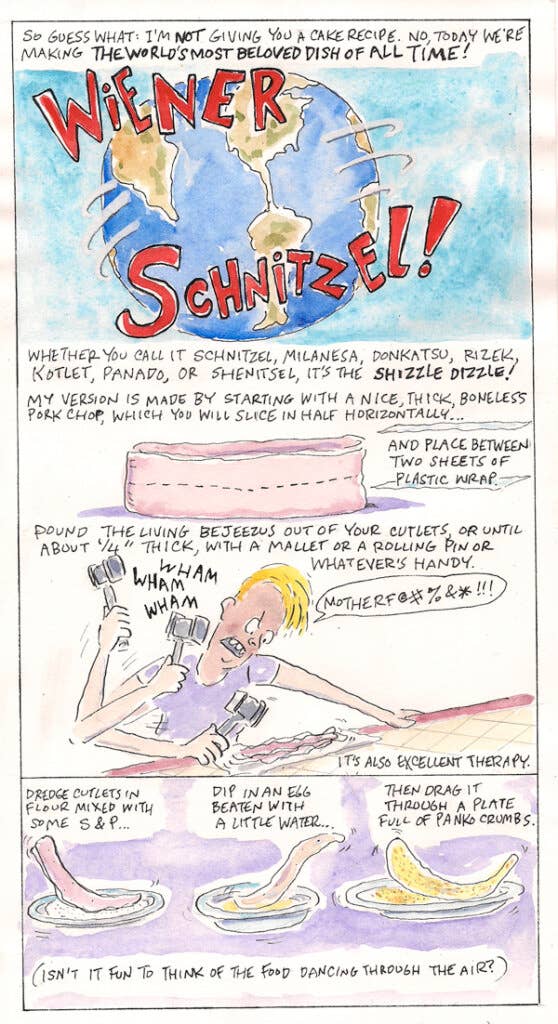 SO GUESS WHAT: I'M NOT GIVING YOU A CAKE RECIPE. NO, TODAY WE'RE
MAKING THE WORLD'S MOST BELOVED DISH OF ALL TIME!
WIENER
SCHNITZEL!
WHETHER YOU CALL IT SCHNITZEL, MILANESA, DONKATSU, RIZEK,
KOTLET, PANADO, OR SHENITSEL, IT'S THE SHIZZLE DIZZLE!
MY VERSION IS MADE BY STARTING WITH A NICE, THICK, BONELESS
PORK CHOP, WHICH YOU WILL SLICE IN HALF HORIZONTALLY...
AND PLACE BETWEEN
TWO SHEETS OF
PLASTIC WRAP.
POUND THE LIVING BEJEEZUS OUT OF YOUR CUTLETS, OR UNTIL
ABOUT 1/4" THICK, WITH A MALLET OR A ROLLING PIN OR
WHATEVER'S HANDY.
WHAM
WHAM
WHAM
MOTHERF@#%&*!!!
IT'S ALSO EXCELLENT THERAPY.
DREDGE CUTLETS IN
FLOUR MIXED WITH
SOME S&P...
DIP IN AN EGG
BEATEN WITH
A LITTLE WATER...
THEN DRAG IT
THROUGH A PLATE
FULL OF PANKO CRUMBS.
(ISN'T IT FUN TO THINK OF THE FOOD DANCING THROUGH THE AIR?)